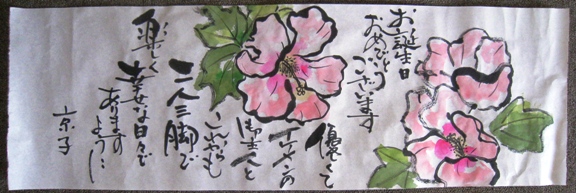 お誕生日
おめでとう
ございます
優くて
イケメンの
御主人と
これからも
二人三脚で
楽しく
幸せな日々で
ありますの
ように
京子